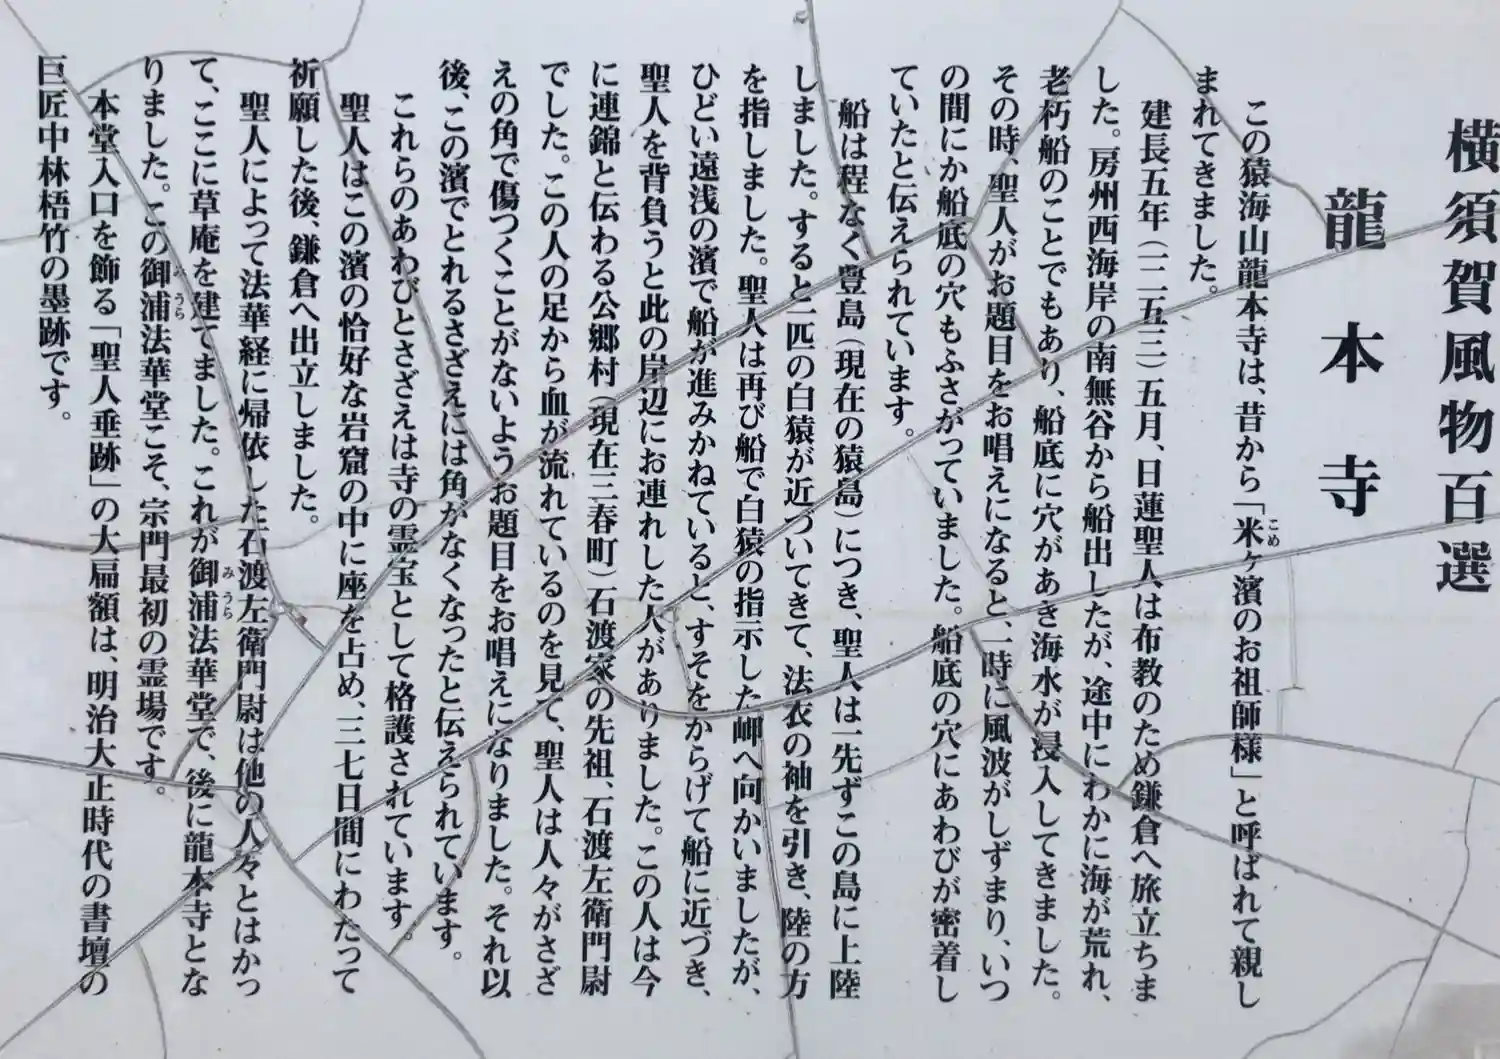 横須賀風物百選
龍本寺
この猿海山龍本寺は、昔から「米ヶ濱のお祖師様」と呼ばれて親し
まれてきました。
建長五年（一二五三）五月、日蓮聖人は布教のため鎌倉へ旅立ちま
した。房州西海岸の南無谷から船出したが、途中にわかに海が荒れ、
老朽船のことでもあり、船底に穴があき海水が浸入してきました。
その時、聖人がお題目をお唱えになると、一時に風波がしずまり、いつ
の間にか船底の穴もふさがっていました。船底の穴にあわびが密着し
ていたと伝えられています。
船は程なく豊島（現在の猿島）につき、聖人は一先ずこの島に上陸
しました。すると一匹の白猿が近づいてきて、法衣の袖を引き、陸の方
を指しました。聖人は再び船で白猿の指示した岬へ向かいましたが、
ひどい遠浅の濱で船が進みかねていると、すそをからげて船に近づき、
聖人を背負うと此の岸辺にお連れした人がありました。この人は今
に連錦と伝わる公郷村（現在三春町）石渡家の先祖、石渡左衛門尉
でした。この人の足から血が流れているのを見て、聖人は人々がさざ
えの角で傷つくことがないようお題目をお唱えになりました。それ以
後、この濱でとれるさざえには角がなくなったと伝えられています。
これらのあわびとさざえは寺の霊宝として格護されています。
聖人はこの濱の恰好な岩窟の中に座を占め、三七日間にわたって
祈願した後、鎌倉へ出立しました。
聖人によって法華経に帰依した石渡左衛門尉は他の人々とはかっ
て、ここに草庵を建てました。これが御浦法華堂で、後に龍本寺とな
りました。この御浦法華堂こそ、宗門最初の霊場です。
本堂入口を飾る「聖人垂跡」の大扁額は、明治大正時代の書壇の
巨匠中林梧竹の墨跡です。
こめ
みうら
みうら